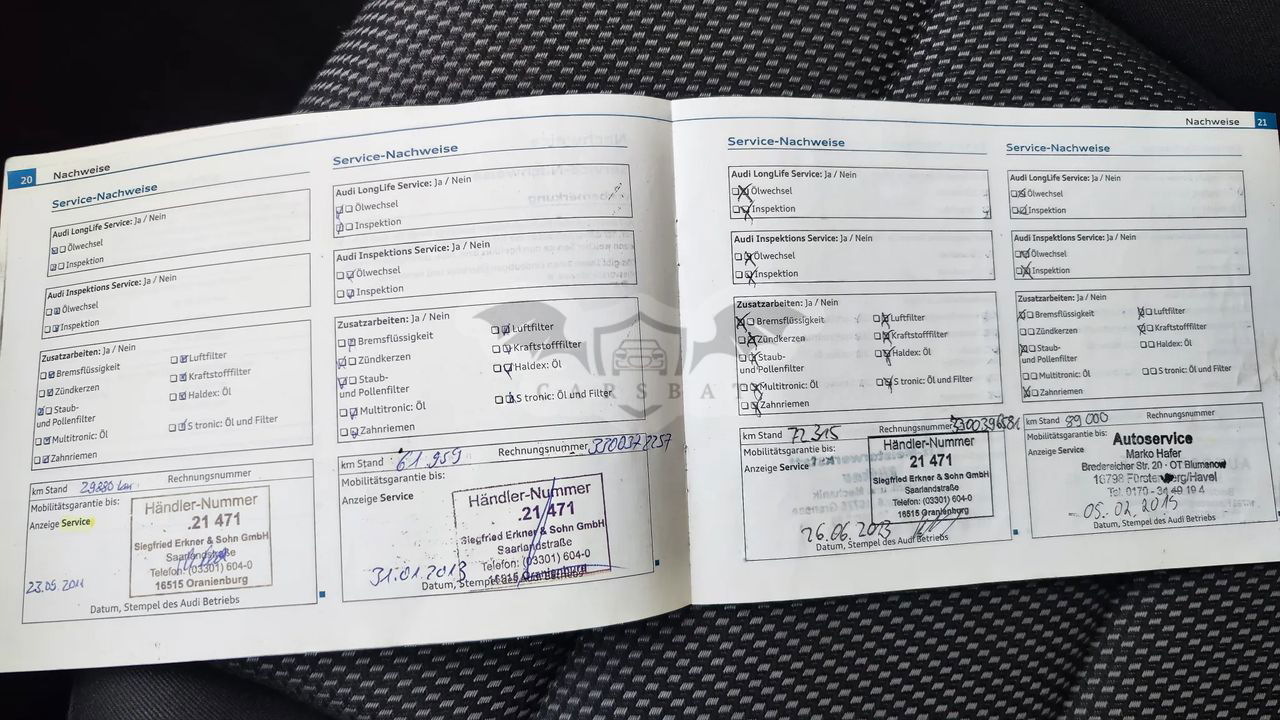 20 Nachweise
Service-Nachweise
Audi LongLife Service: Ja / Nein
Ölwechsel
Inspektion
Audi Inspektions Service: Ja / Nein
Ölwechsel
Inspektion
Zusatzarbeiten: Ja / Nein
Bremsflüssigkeit
Zündkerzen
Staub-
und Pollenfilter
Multitronic: Öl
Zahnriemen
Luftfilter
Kraftstofffilter
Haldex: Öl
S tronic: Öl und Filter
km Stand 29280 km
Rechnungsnummer
Mobilitätsgarantie bis:
Anzeige Service
Händler-Nummer
.21 471
Siegfried Erkner & Sohn GmbH
Saarlandstraße
Telefon: (03301) 604-0
16515 Oranienburg
23.05.2011
Datum, Stempel des Audi Betriebs
Service-Nachweise
Audi LongLife Service: Ja / Nein
Ölwechsel
Inspektion
Audi Inspektions Service: Ja / Nein
Ölwechsel
Inspektion
Zusatzarbeiten: Ja / Nein
Bremsflüssigkeit
Zündkerzen
Staub-
und Pollenfilter
Multitronic: Öl
Zahnriemen
Luftfilter
Kraftstofffilter
Haldex: Öl
S tronic: Öl und Filter
km Stand 61.959
Rechnungsnummer
Mobilitätsgarantie bis:
Anzeige Service
Händler-Nummer
.21 471
Siegfried Erkner & Sohn GmbH
Saarlandstraße
Telefon: (03301) 604-0
16515 Oranienburg
31.01.2013
Datum, Stempel des Audi Betriebs
CARSBAT
Nachweise 21
Service-Nachweise
Audi LongLife Service: Ja / Nein
Ölwechsel
Inspektion
Audi Inspektions Service: Ja / Nein
Ölwechsel
Inspektion
Zusatzarbeiten: Ja / Nein
Bremsflüssigkeit
Zündkerzen
Staub-
und Pollenfilter
Multitronic: Öl
Zahnriemen
Luftfilter
Kraftstofffilter
Haldex: Öl
S tronic: Öl und Filter
km Stand 72315
Rechnungsnummer
Mobilitätsgarantie bis:
Anzeige Service
Händler-Nummer
21 471
Siegfried Erkner & Sohn GmbH
Saarlandstraße
Telefon: (03301) 604-0
16515 Oranienburg
26.06.2013
Datum, Stempel des Audi Betriebs
Service-Nachweise
Audi LongLife Service: Ja / Nein
Ölwechsel
Inspektion
Audi Inspektions Service: Ja / Nein
Ölwechsel
Inspektion
Zusatzarbeiten: Ja / Nein
Bremsflüssigkeit
Zündkerzen
Staub-
und Pollenfilter
Multitronic: Öl
Zahnriemen
Luftfilter
Kraftstofffilter
Haldex: Öl
S tronic: Öl und Filter
km Stand 89000
Rechnungsnummer
Mobilitätsgarantie bis:
Anzeige Service
Autoservice
Marko Hafer
Bredereicher Str. 20 - OT Blumenow
16798 Fürstenberg/Havel
Tel. 0170 - 34 49 19 4
05.02.2015
Datum, Stempel des Audi Betriebs